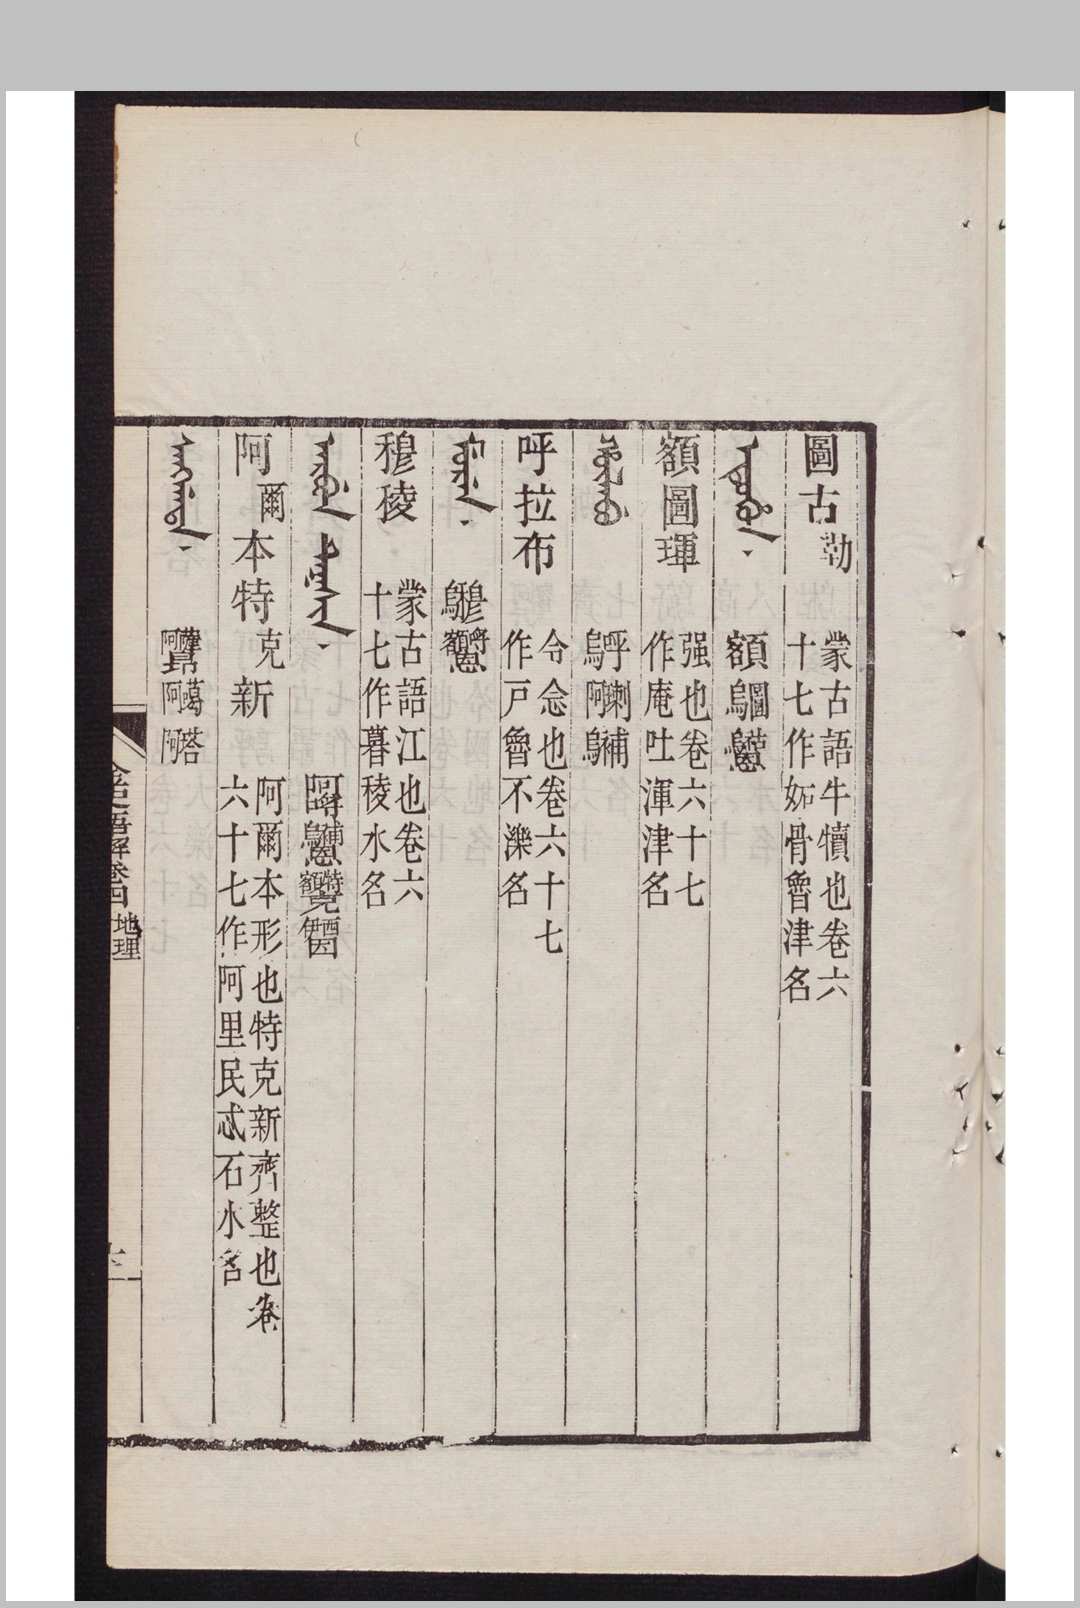 圖古勒 蒙古語牛犢也卷六
十七作妬骨魯津名
ᡝᡨᡠᡥᡠᠨ 額圖
烏
額圖琿 强也卷六十七
作庵吐渾津名
ᡥᡡᠯᠠᠪᡠ 呼喇補
烏阿烏
呼拉布 令念也卷六十七
作戸魯不濼名
穆稜 蒙古語江也卷六
十七作暮稜水名
ᠠᡵᠪᡠᠨ ᡨᡝᡴᠰᡳᠨ
阿爾本特克新 阿爾本形也特克新齊整也卷
六十七作阿里民忒石水名
葛塔
阿阿
金史語解卷四 地理 十二